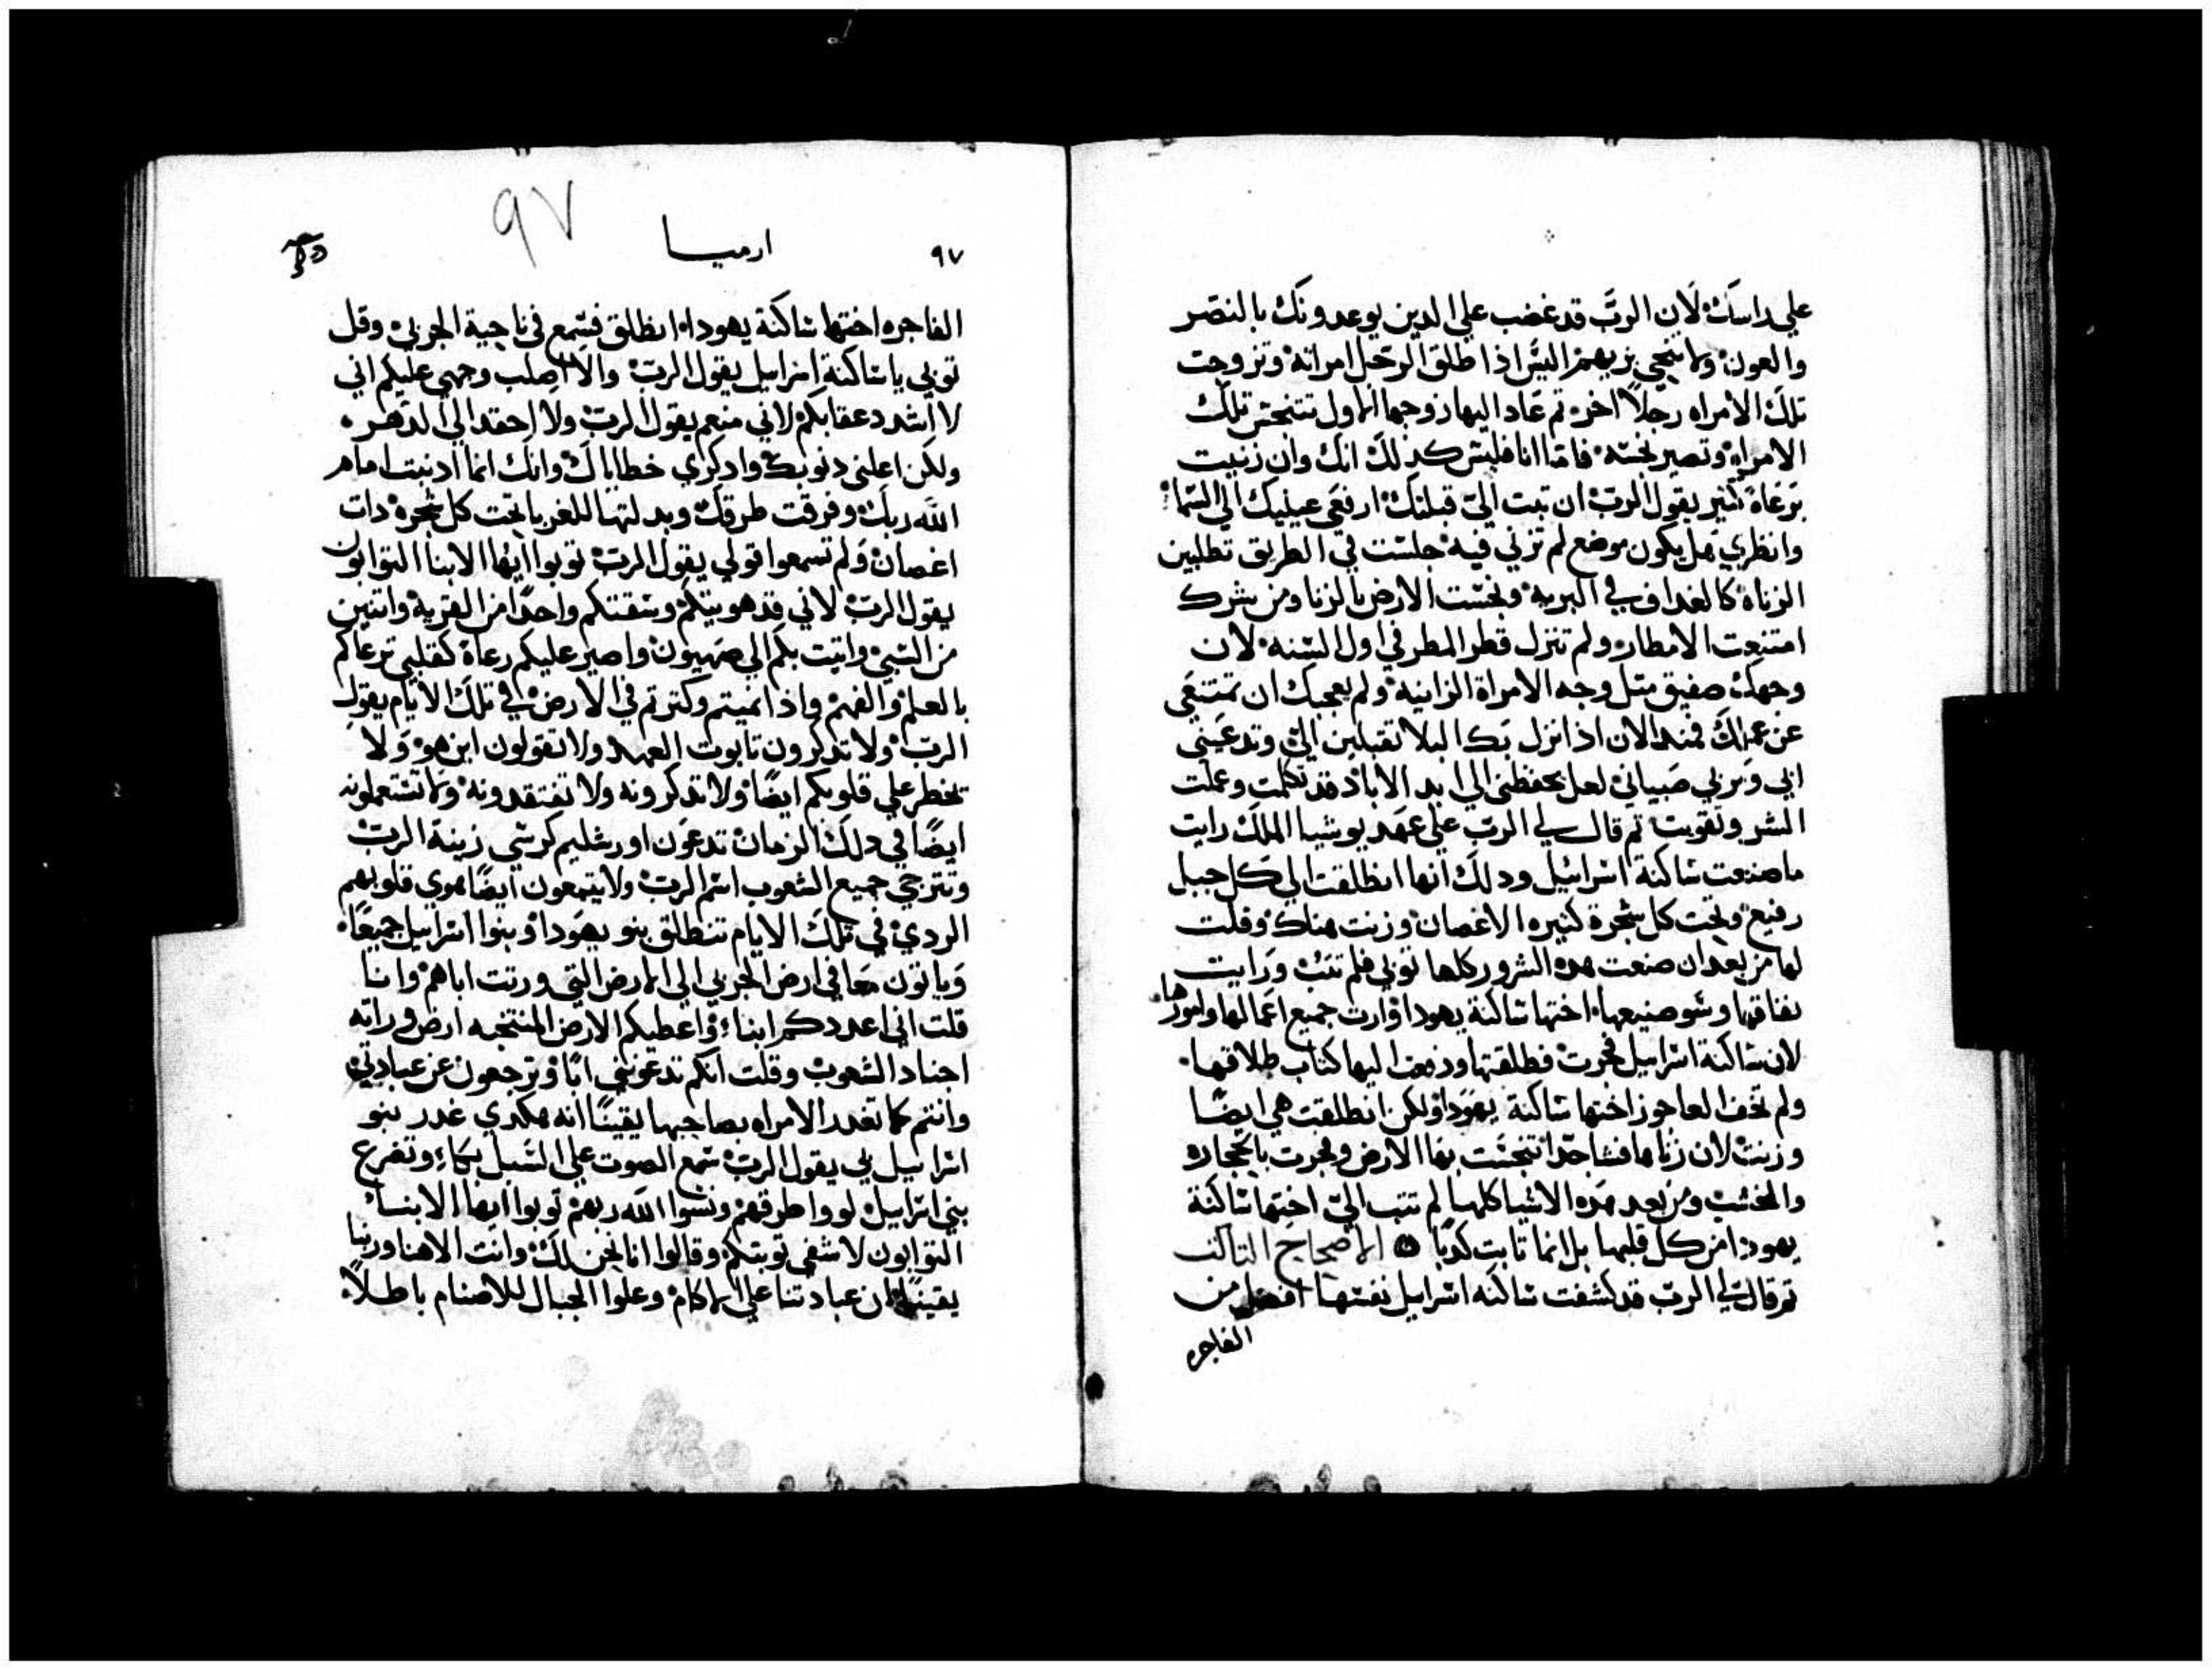 علي راسك لان الرب قد غضب علي الدين يوعدونك بالنصر
والعون ولا تنجي بهم البس اذا طلق الرجل امراته وتزوجت
تلك الامراه رجلاً اخر تم عاد اليها زوجها الاول تتنجس تلك
الامراه وتصير نجسه فاما انا فليس كذلك انك وان زنيت
برعاة كتير يقول الرب ان تبت الي قبلتك ارفعي عينيك الي السما
وانظري هل يكون موضع لم تزني فيه جلست في الطريق تطلبين
الزناه كالغداف في البريه ونجست الارض بالزنا ومن شرك
امتنعت الامطار ولم تنزل قطر المطر في اول السنه لان
وجهك صفيق متل وجه الامراة الزانيه ولم يعجبك ان تمتنعي
عن عملك فمند الان اذا نزل بك البلا تقبلين الي وتدعيني
ابي ومربي صبياني لعل يحفظني الي ابد الاباد قد تكلمت وعملت
الشر وتقويت تم قال لي الرب علي عهد يوشيا الملك رايت
ما صنعت ساكنة اسرائيل ودلك انها انطلقت الي كل جبل
رفيع وتحت كل شجرة كتيره الاغصان وزنت هناك وقلت
لها من بعد ان صنعت هده الشرور كلها توبي فلم تتب ورايت
نفاقها وسو صنيعها اختها ساكنة يهودا وارت جميع اعمالها وامورها
لان ساكنة اسراييل فجرت فطلقتها ودفعت اليها كتاب طلاقها
ولم تخف العاجوز اختها ساكنة يهودا ولكن انطلقت هي ايضًا
وزنت لان زناها فشا جدا تنجست بها الارض وفجرت بالحجاره
والخشب ومن بعد هده الاشيا كلها لم تتب الي اختها ساكنة
يهودا من كل قلبها بل انما تابت كدبًا الاصحاح التالت
تم قال لي الرب قد كشفت ساكنه اسراييل نفسها افضل من
الفاجره
٩٧ ارميا
٩٧
الفاجره اختها ساكنة يهودا انطلق فسمع في ناحية الجربي وقل
توبي يا ساكنة اسراييل يقول الرب والا اصلب وجهي عليكم اني
لا اشدد عقابكم لاني منعم يقول الرب ولا احقد الي الدهر
ولكن اعلني دنوبك وادكري خطاياك وانك انما ادنبت امام
الله ربك وفرقت طرقك وبدلتها للغربا تحت كل شجرة دات
اغصان ولم تسمعوا قولي يقول الرب توبوا ايها الابنا التوابون
يقول الرب لاني قد هويتكم وسقتكم واحدًا من القرية واتنين
من السبي واتيت بكم الي صهيون واصير عليكم رعاة كقلبي ترعاكم
بالعلم والفهم واذا نميتم وكترتم في الارض في تلك الايام يقول
الرب ولا تدكرون تابوت العهد ولا تقولون اين هو ولا
يخطر علي قلوبكم ايضًا ولا تدكرونه ولا تفتقدونه ولا تستعملونه
ايضًا في دلك الزمان تدعون اورشليم كرسي زينة الرب
وتترجي جميع الشعوب اسم الرب ولا يتبعون ايضًا هوي قلوبهم
الردي في تلك الايام تنطلق بنو يهودا وبنوا اسراييل جميعًا
وياتون معا في ارض الجربي الي الارض التي ورتت اباهم وانا
قلت اني اعددكم ابناء واعطيكم الارض المنتخبه ارض وراته
اجناد الشعوب وقلت انكم تدعونني ابًا وترجعون عن عبادتي
وانتم كما تغدر الامراه بصاحبها يقينًا انه هكدي غدر بنو
اسراييل بي يقول الرب سمع الصوت علي السبل بكاء وتضرع
بني اسراييل لووا طرقهم ونسوا الله ربهم توبوا ايها الابنا
التوابون لاشفي توبتكم وقالوا انا نحن لك وانت الاهنا وربنا
يقينًا ان عبادتنا علي الاكام وعلوا الجبال للاصنام باطلاً